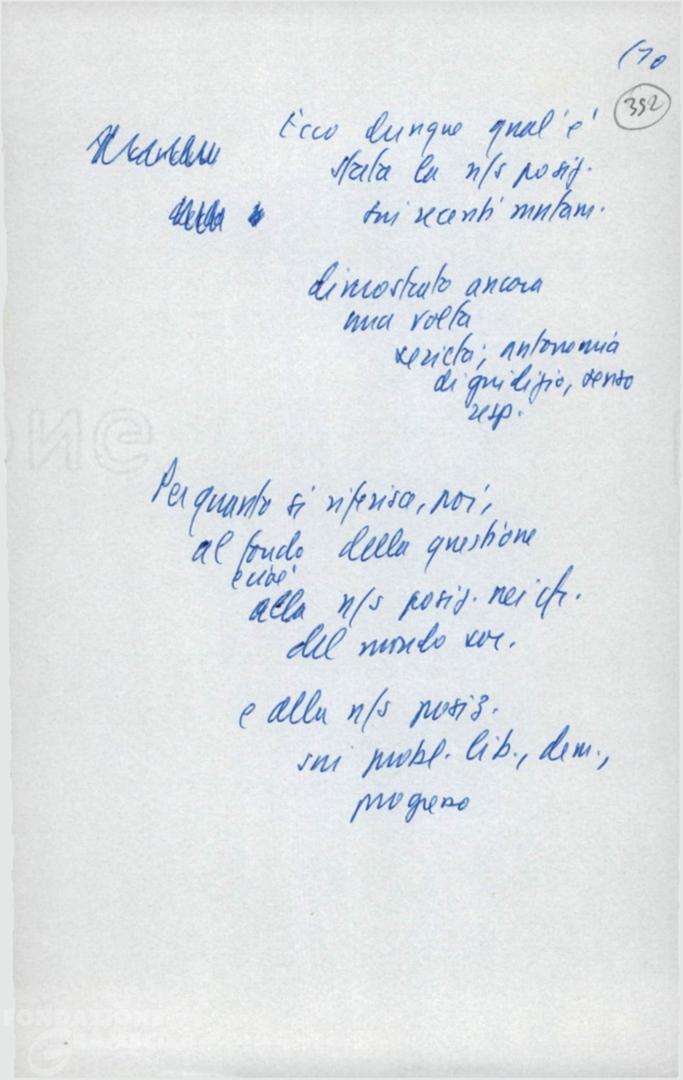 (10
352
Ecco dunque qual'è
stata la n/s posiz.
sui recenti mutam.
dimostrato ancora
una volta
serietà, autonomia
di giudizio, senso
resp.
Per quanto si riferisce, poi,
al fondo della questione
e cioè
alla n/s posiz. nei cfr.
del mondo soc.
e alla n/s posiz.
sui probl. lib., dem.,
progresso
FONDAZIONE